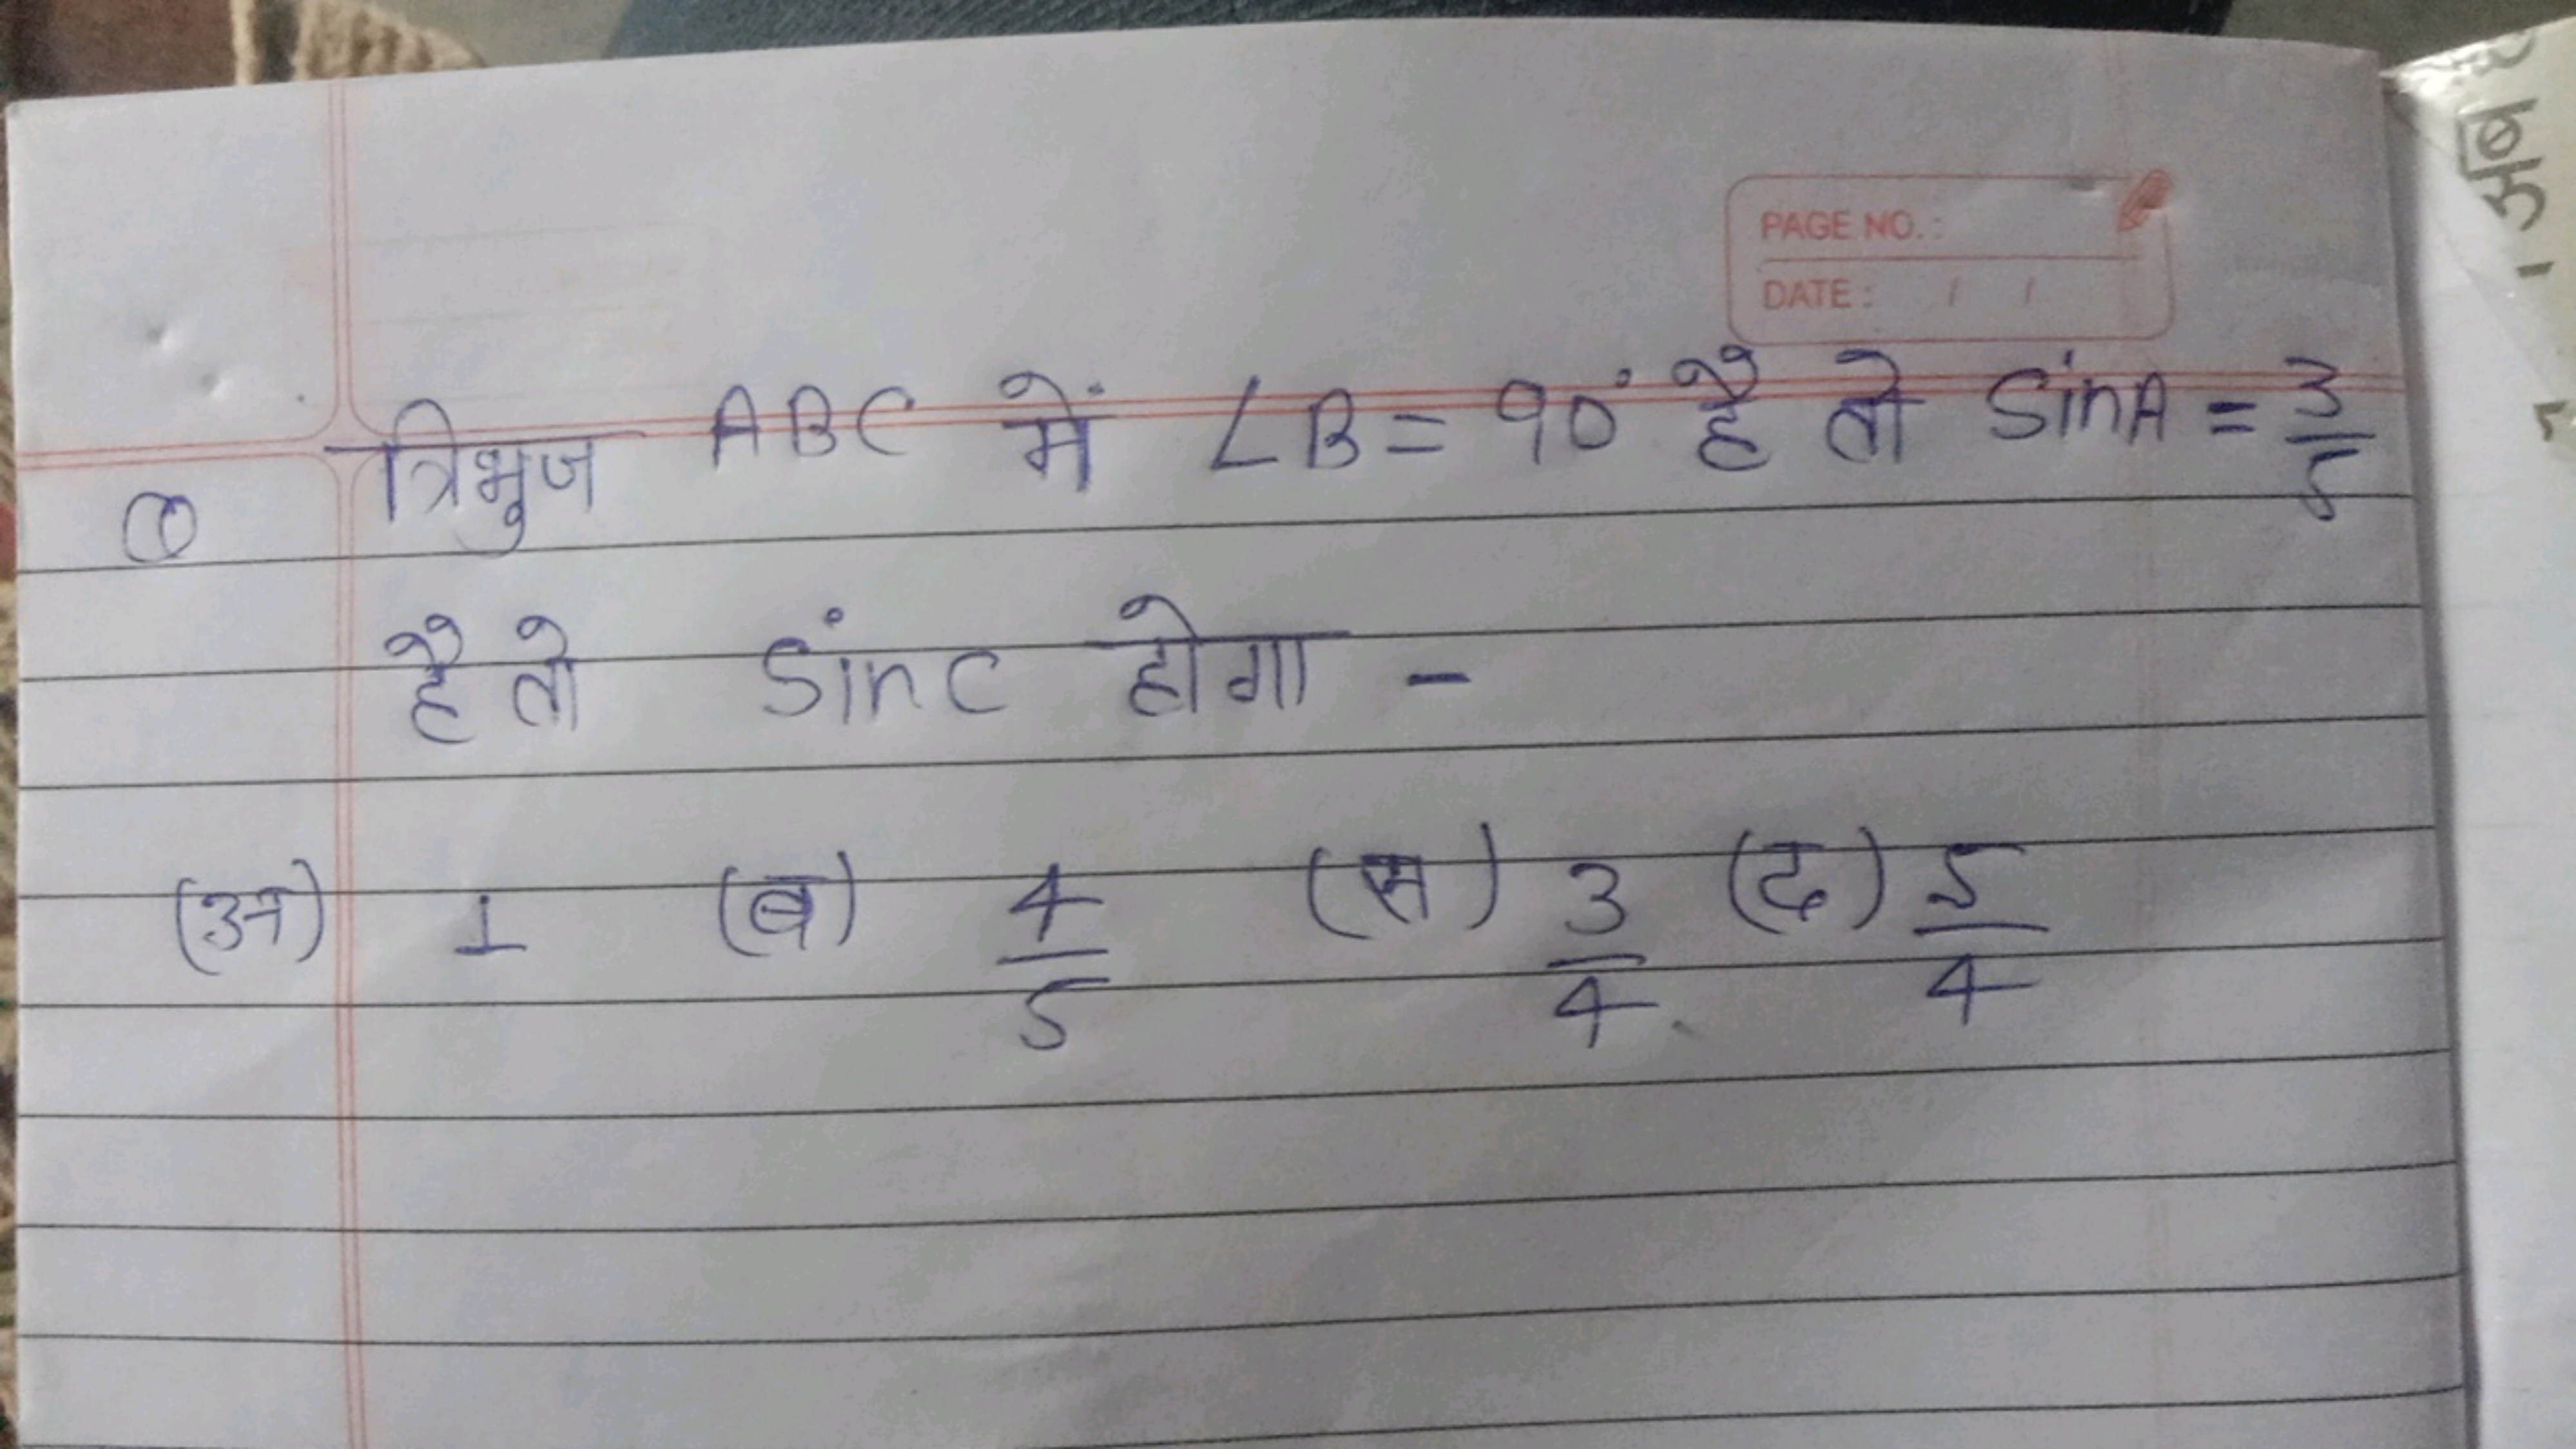 PAGE NO.:
DATE: / /
Q त्रिभुज ABC में ∠B = 90° है तो SinA = 3/5
है तो Sinc होगा -
(अ) 1 (ब) 4/5 (स) 3/4 (द) 5/4